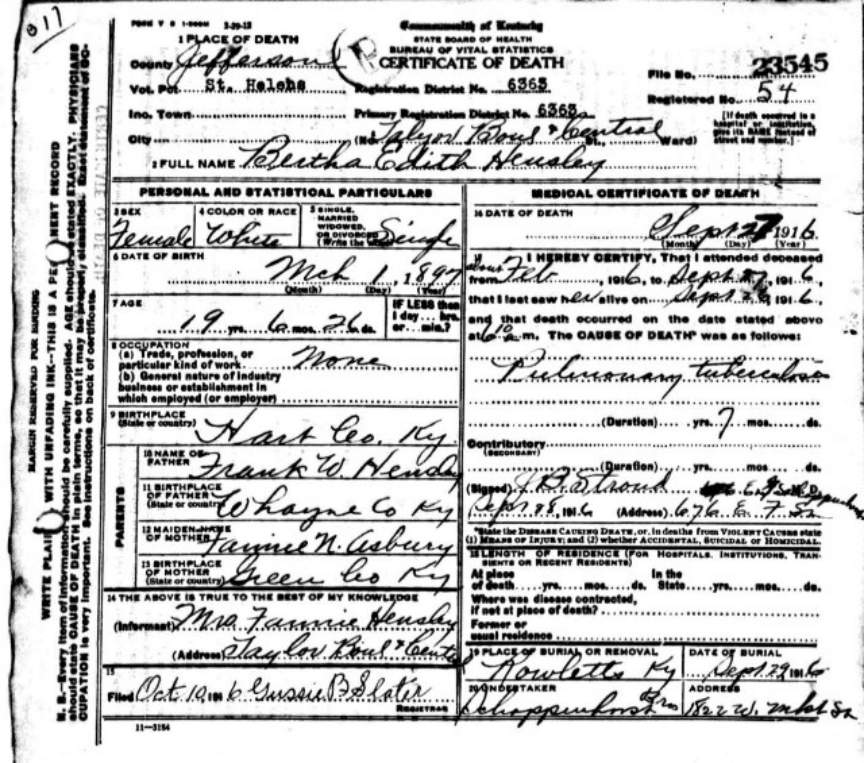 317
FORM V S 1-200M 3-29-13
Commonwealth of Kentucky
STATE BOARD OF HEALTH
BUREAU OF VITAL STATISTICS
CERTIFICATE OF DEATH
1 PLACE OF DEATH
County Jefferson
Vot. Pct St. Helens Registration District No. 6363
Inc. Town Primary Registration District No. 6363
City (No. Talyor Boul & Central St., Ward)
File No. 23545
Registered No. 54
[If death occurred in a hospital or institution, give its NAME instead of street and number.]
2 FULL NAME Bertha Edith Hensley
PERSONAL AND STATISTICAL PARTICULARS
3 SEX Female
4 COLOR OR RACE White
5 SINGLE, MARRIED WIDOWED, OR DIVORCED (Write the word) Single
6 DATE OF BIRTH
Mch 1, 1897
(Month) (Day) (Year)
7 AGE
19 yrs. 6 mos. 26 ds.
IF LESS than 1 day... hrs. or... min.?
8 OCCUPATION
(a) Trade, profession, or particular kind of work None
(b) General nature of industry
business or establishment in
which employed (or employer)
9 BIRTHPLACE
(State or country) Hart Co. Ky.
PARENTS
10 NAME OF FATHER Frank W. Hensley
11 BIRTHPLACE OF FATHER (State or country) Whayne Co Ky
12 MAIDEN NAME OF MOTHER Fannie N. Asbury
13 BIRTHPLACE OF MOTHER (State or country) Green Co Ky
14 THE ABOVE IS TRUE TO THE BEST OF MY KNOWLEDGE
(Informant) Mrs Fannie Hensley
(Address) Taylor Boul & Central
15
Filed Oct 10 1916 Gussie B Slater
REGISTRAR
11—3184
MEDICAL CERTIFICATE OF DEATH
16 DATE OF DEATH
Sept 27 1916
(Month) (Day) (Year)
17 I HEREBY CERTIFY, That I attended deceased
from about Feb, 1916, to Sept 27, 1916,
that I last saw her alive on Sept 26, 1916,
and that death occurred on the date stated above
at 6 10 m. The CAUSE OF DEATH* was as follows:
Pulmonary tuberculosis
(Duration) yrs. 7 mos. ds.
Contributory
(SECONDARY)
(Duration) yrs. mos. ds.
(Signed) J B Stroud M. D.
Sept 28, 1916 (Address) 676 E
*State the DISEASE CAUSING DEATH, or, in deaths from VIOLENT CAUSES state
(1) MEANS OF INJURY; and (2) whether ACCIDENTAL, SUICIDAL or HOMICIDAL.
18 LENGTH OF RESIDENCE (FOR HOSPITALS, INSTITUTIONS, TRANSIENTS OR RECENT RESIDENTS)
At place of death yrs. mos. ds. In the State yrs. mos. ds.
Where was disease contracted,
if not at place of death?
Former or
usual residence
19 PLACE OF BURIAL OR REMOVAL Rowletts Ky
DATE OF BURIAL Sept 29 1916
20 UNDERTAKER Schoppenhorst Bros
ADDRESS 1822 W. Mkt St
MARGIN RESERVED FOR BINDING
WRITE PLAIN WITH UNFADING INK—THIS IS A PE NENT RECORD
N. B.—Every item of information should be carefully supplied. AGE should be stated EXACTLY. PHYSICIANS
should state CAUSE OF DEATH in plain terms, so that it may be properly classified. Exact statement of OC-
CUPATION is very important. See instructions on back of certificate.